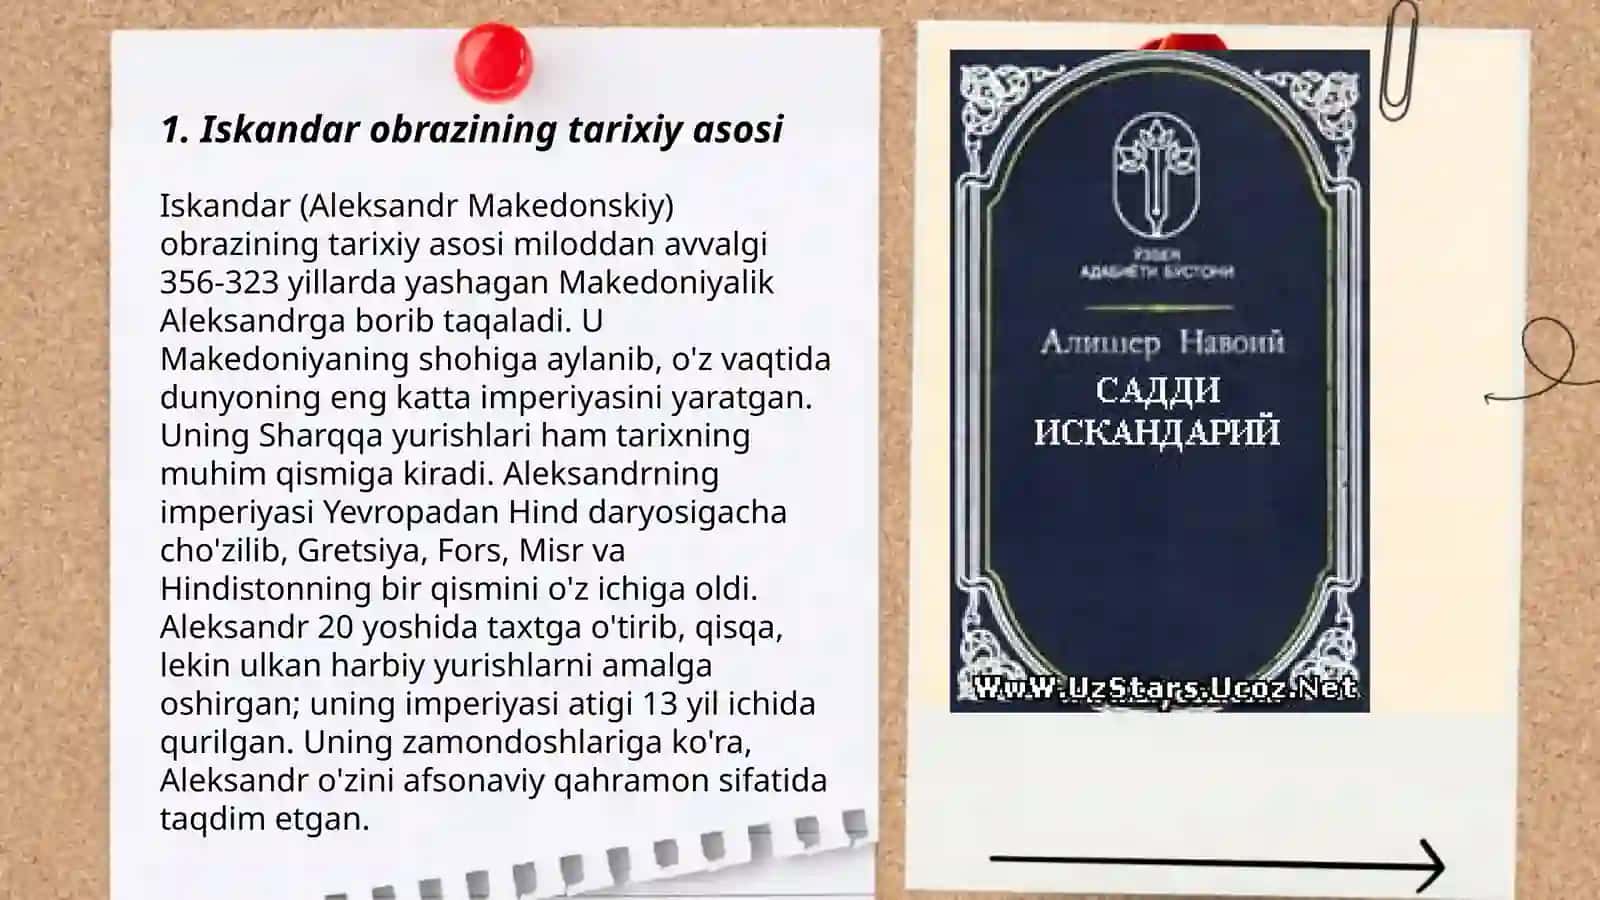 1. Iskandar obrazining tarixiy asosi
Iskandar (Aleksandr Makedonskiy)
obrazining tarixiy asosi miloddan avvalgi
356-323 yillarda yashagan Makedoniyalik
Aleksandrga borib taqaladi. U
Makedoniyaning shohiga aylanib, o'z vaqtida
dunyoning eng katta imperiyasini yaratgan.
Uning Sharqqa yurishlari ham tarixning
muhim qismiga kiradi. Aleksandrning
imperiyasi Yevropadan Hind daryosigacha
cho'zilib, Gretsiya, Fors, Misr va
Hindistonning bir qismini o'z ichiga oldi.
Aleksandr 20 yoshida taxtga o'tirib, qisqa,
lekin ulkan harbiy yurishlarni amalga
oshirgan; uning imperiyasi atigi 13 yil ichida
qurilgan. Uning zamondoshlariga ko'ra,
Aleksandr o'zini afsonaviy qahramon sifatida
taqdim etgan.
ЎЗБЕК
АДАБИЁТИ БЎСТОНИ
Алишер Навоий
САДДИ
ИСКАНДАРИЙ
WwW.UzStars.Ucoz.Net